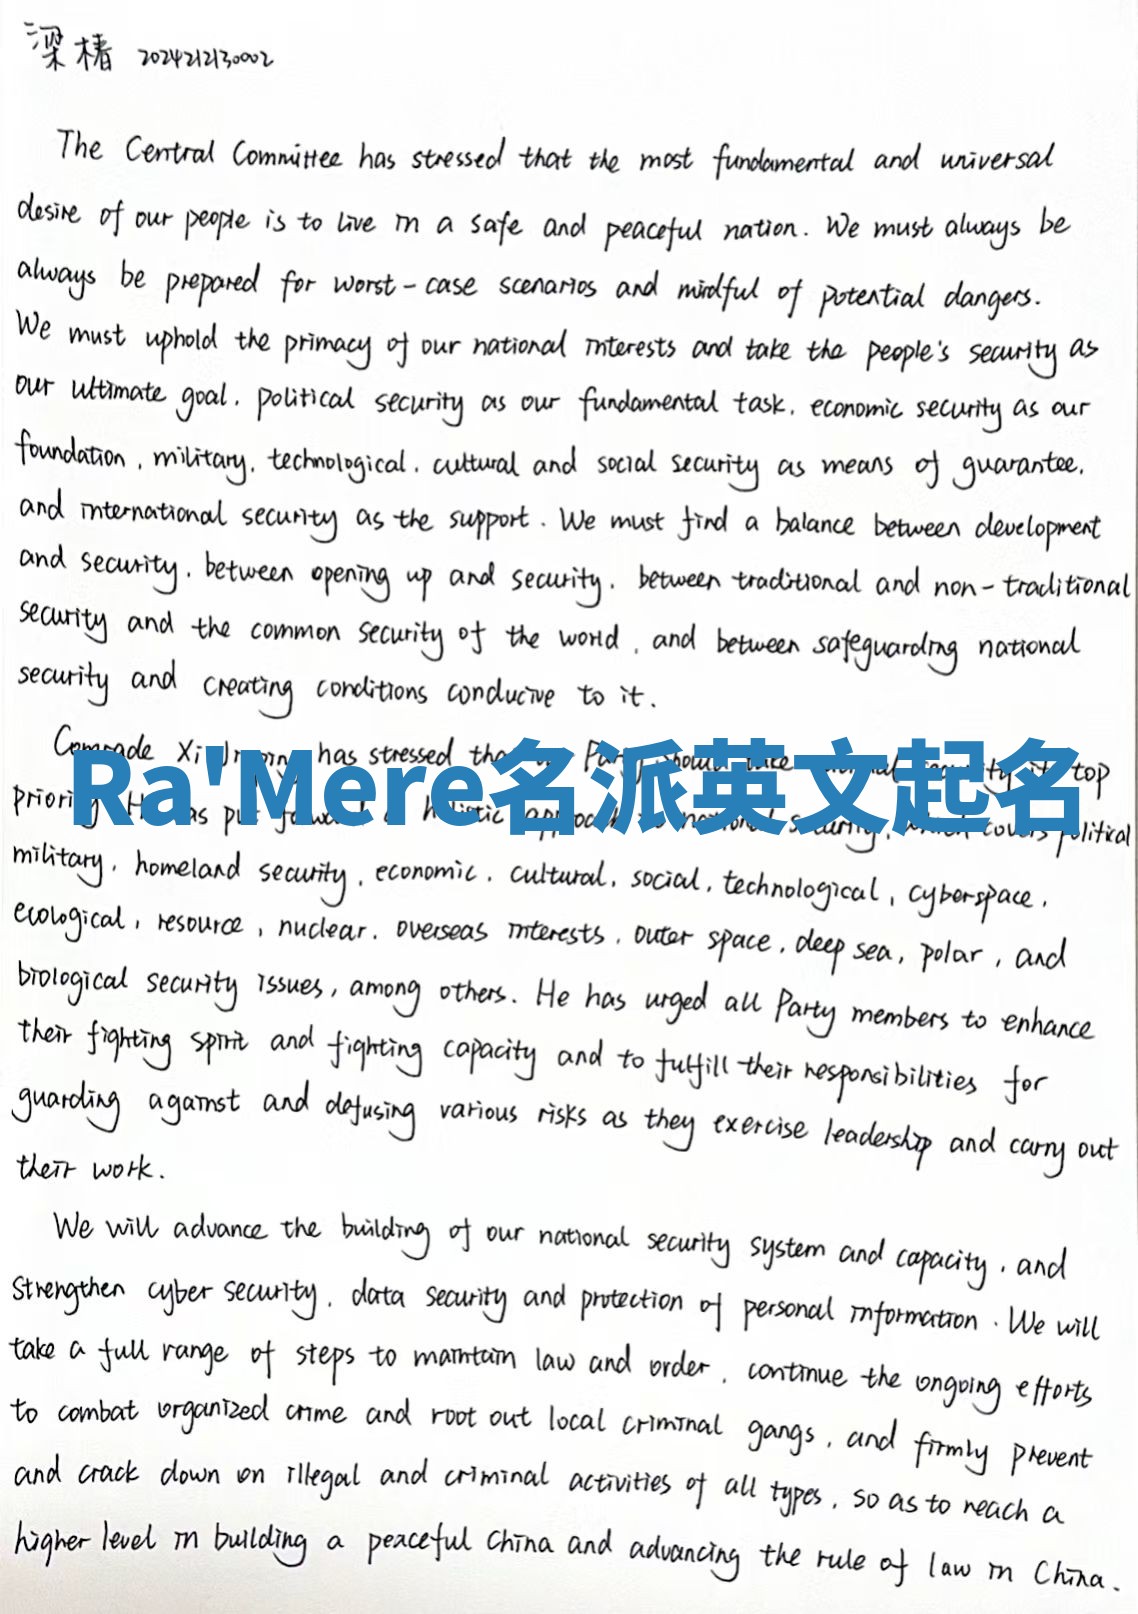 梁椿 2024212130002
The Central Committee has stressed that the most fundamental and universal
desire of our people is to live in a safe and peaceful nation. We must always be
always be prepared for worst-case scenarios and mindful of potential dangers.
We must uphold the primacy of our national interests and take the people's security as
our ultimate goal, political security as our fundamental task, economic security as our
foundation, military, technological, cultural and social security as means of guarantee,
and international security as the support. We must find a balance between development
and security, between opening up and security, between traditional and non-traditional
security and the common security of the world, and between safeguarding national
security and creating conditions conducive to it.
Comrade Xi Jinping has stressed Party should top
Ra'Mere名派英文起名
put forward a holistic approach to national security, which covers political
military, homeland security, economic, cultural, social, technological, cyberspace,
ecological, resource, nuclear, overseas interests, outer space, deep sea, polar, and
biological security issues, among others. He has urged all Party members to enhance
their fighting spirit and fighting capacity and to fulfill their responsibilities for
guarding against and defusing various risks as they exercise leadership and carry out
their work.
We will advance the building of our national security system and capacity, and
strengthen cyber security, data security and protection of personal information. We will
take a full range of steps to maintain law and order, continue the ongoing efforts
to combat organized crime and root out local criminal gangs, and firmly prevent
and crack down on illegal and criminal activities of all types, so as to reach a
higher level in building a peaceful China and advancing the rule of law in China.